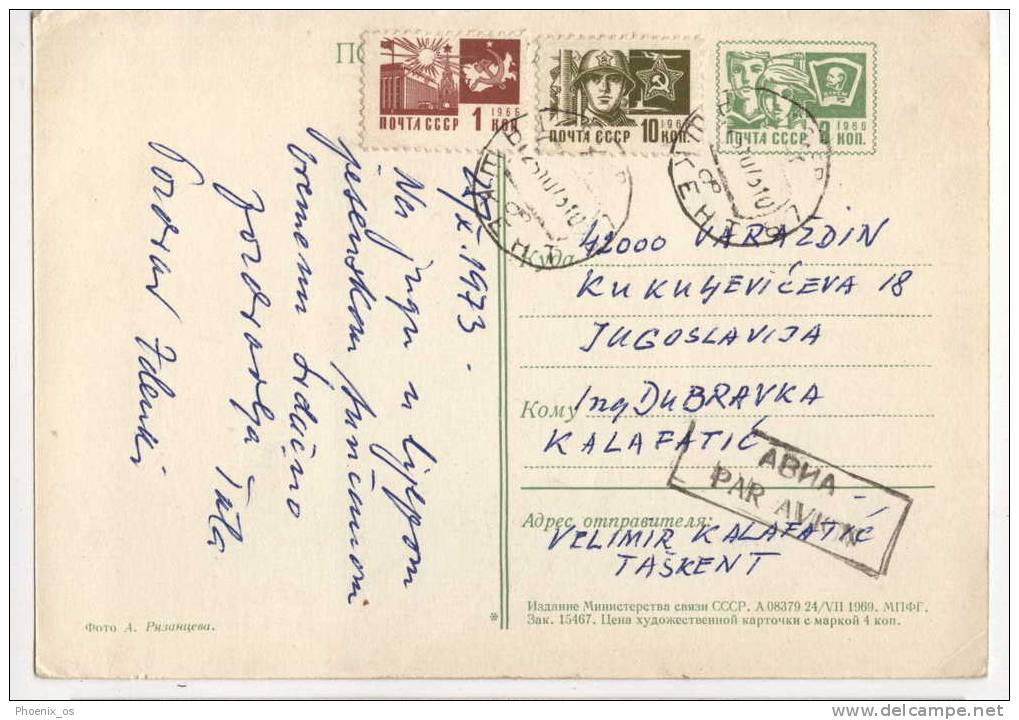 ПО
1966
ПОЧТА СССР 1 КОП
1966
ПОЧТА СССР 10 КОП.
1966
ПОЧТА СССР 3 КОП.
X. 1973.
Na jugu u lijepom
jesenskom sunčanom
vremenu srdačno
pozdravlja
Tata
Pozdrav Zdenki
Куда 42000 VARAŽDIN
KUKULJEVIĆEVA 18
JUGOSLAVIJA
Кому Ing DUBRAVKA
KALAFATIĆ
АВИА
PAR AVION
Адрес отправителя:
VELIMIR KALAFATIĆ
TAŠKENT
Издание Министерства связи СССР. А 08379 24/VII 1969. МПФГ.
Зак. 15467. Цена художественной карточки с маркой 4 коп.
Фото А. Рязанцева.
Phoenix_os
delcampe.net